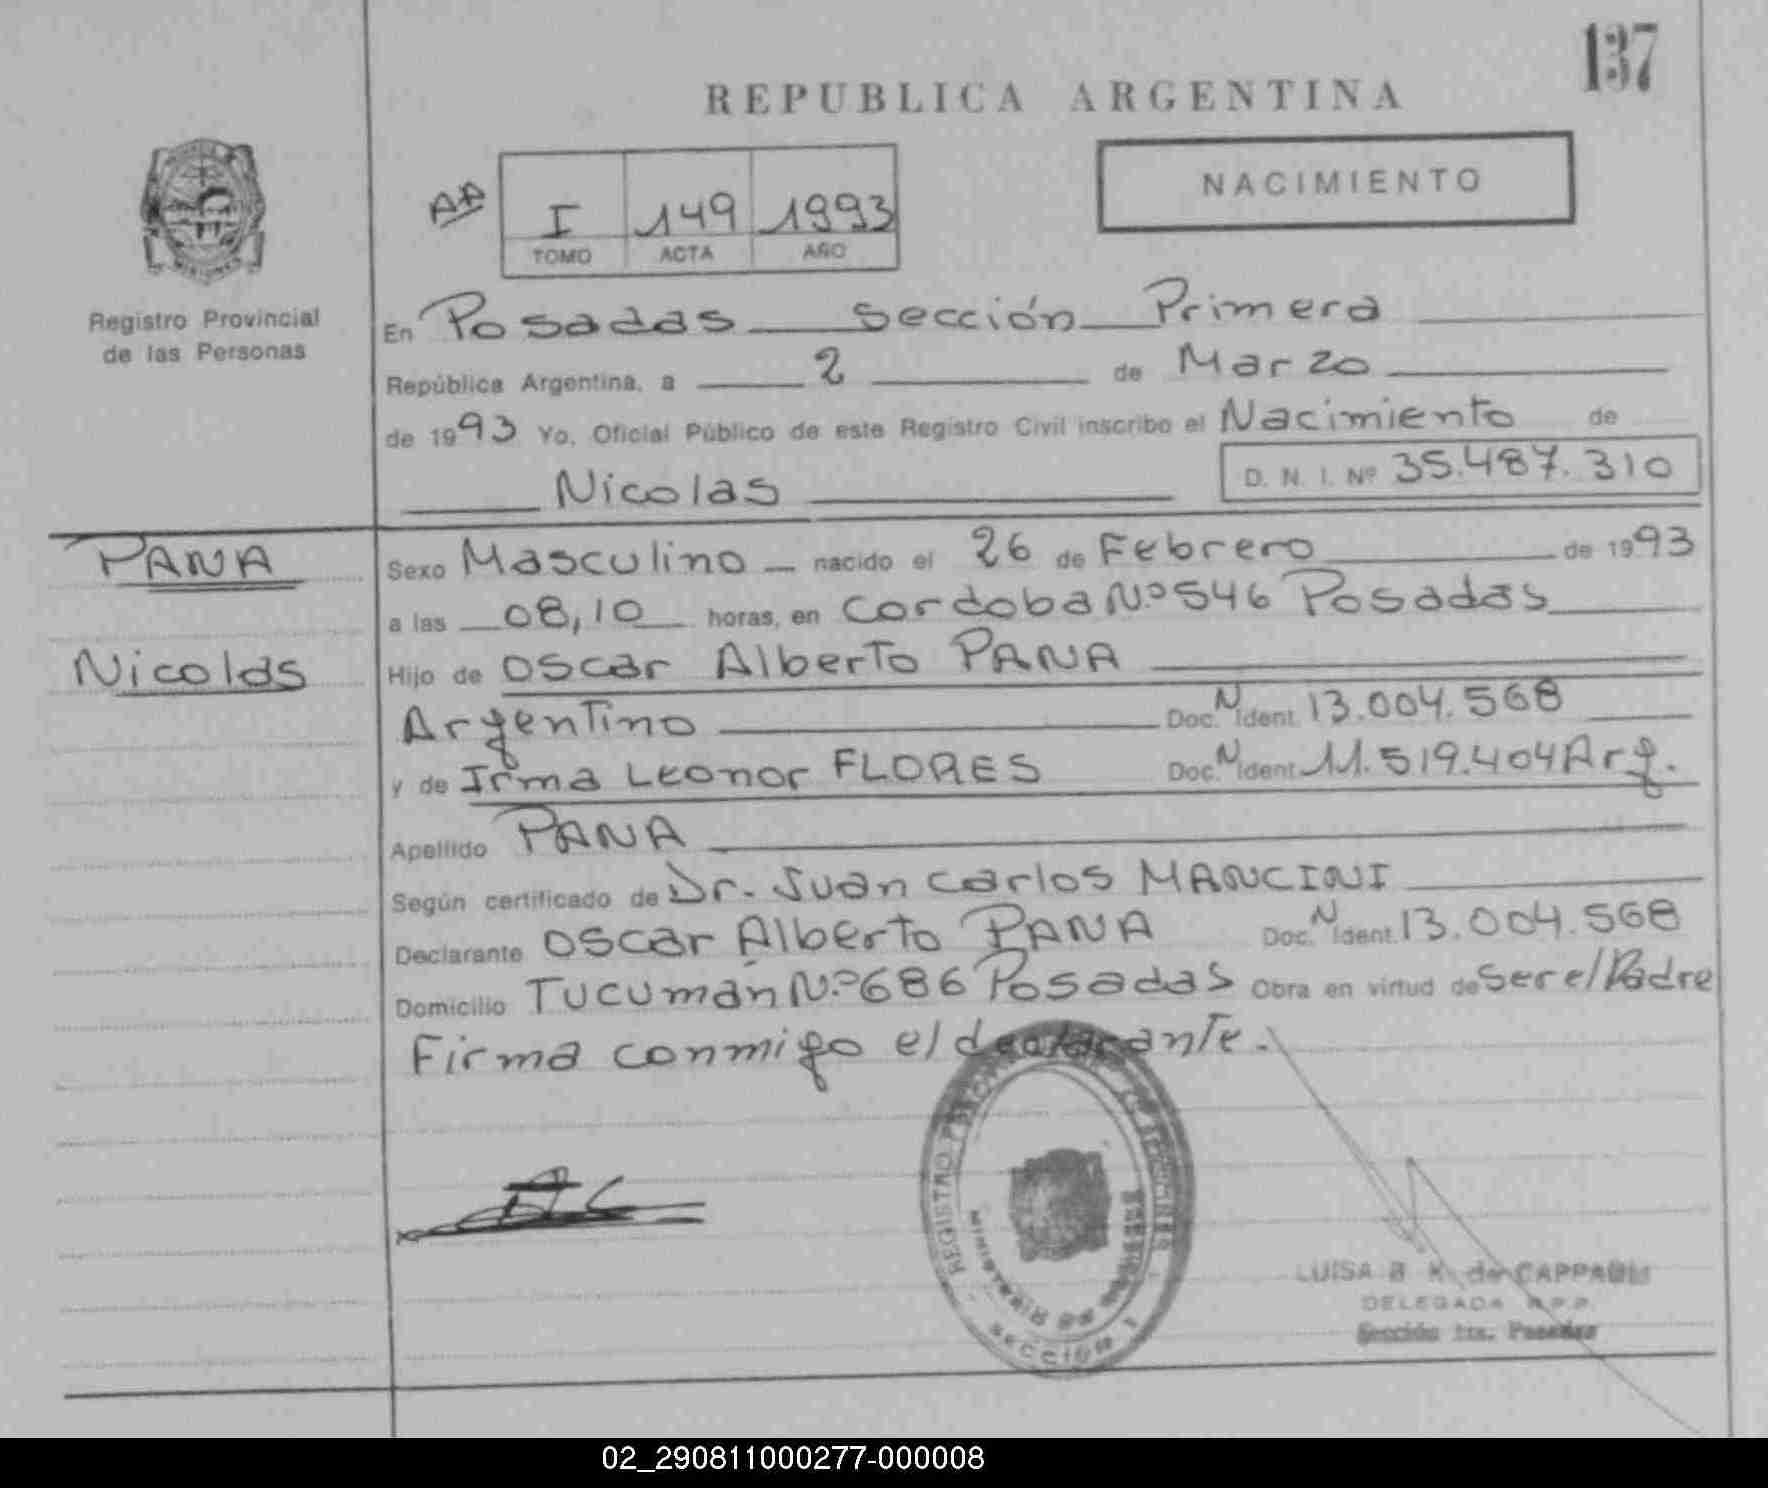 137
REPUBLICA ARGENTINA
NACIMIENTO
I 149 1993
TOMO ACTA AÑO
Registro Provincial
de las Personas
En Posadas sección Primera
República Argentina, a 2 de Marzo
de 1993 Yo, Oficial Público de este Registro Civil inscribo el Nacimiento de
Nicolas D. N. I. Nº 35.487.310
PANA
Sexo Masculino nacido el 26 de Febrero de 1993
a las 08,10 horas, en Cordoba N.º 546 Posadas
Nicolas
Hijo de Oscar Alberto PANA
Argentino Doc. N Ident. 13.004.568
y de Irma Leonor FLORES Doc. N Ident. 11.519.404 Arg.
Apellido PANA
Según certificado de Dr. Juan Carlos MANCINI
Declarante Oscar Alberto PANA Doc. N Ident. 13.004.568
Domicilio Tucumán N.º 686 Posadas Obra en virtud de Ser el Padre
Firma conmigo el declarante.
REGISTRO
MINISTERIO DE
Sección 1
LUISA B K de
DELEGADA R.P.P.
Sección 1ra. Posadas
02_290811000277-000008